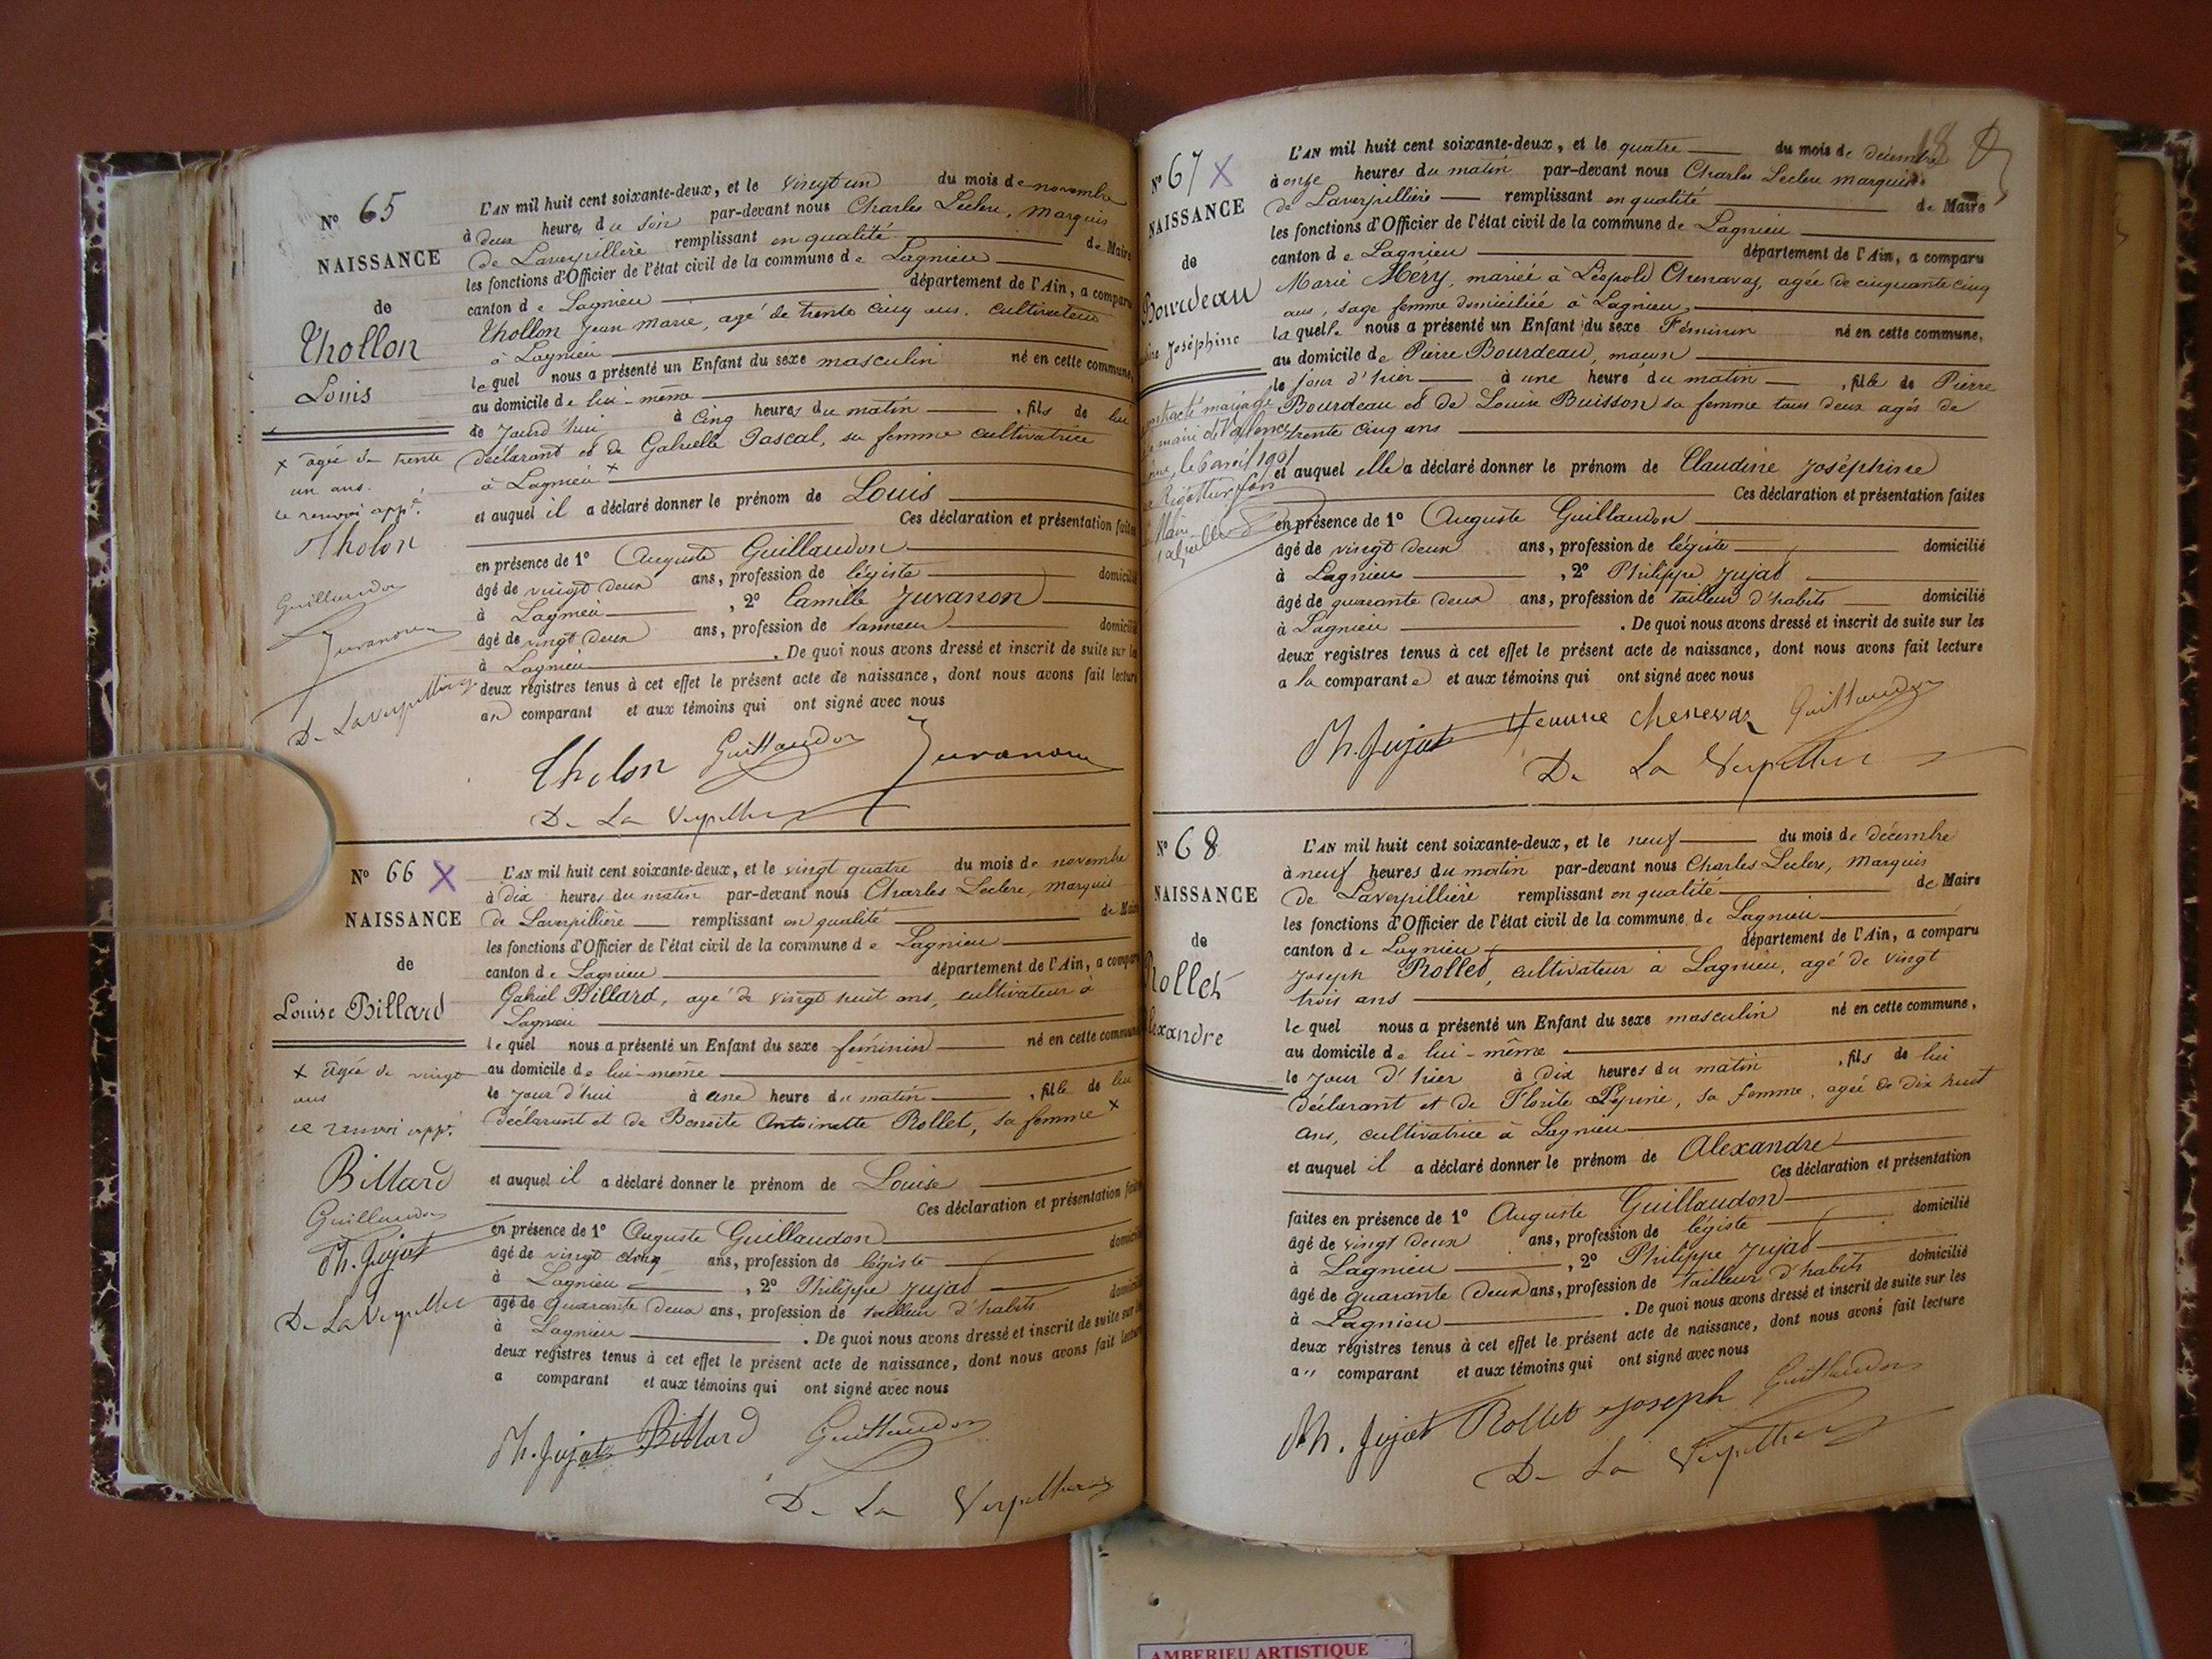 Nº 65
NAISSANCE
de
Thollon
Louis
L'AN mil huit cent soixante-deux, et le vingt un du mois de novembre
à deux heures du soir par-devant nous Charles Leclerc, Marquis
de Laverpillière remplissant en qualité de Maire
les fonctions d'Officier de l'état civil de la commune de Lagnieu
canton de Lagnieu département de l'Ain, a comparu
Thollon Jean Marie, agé de trente cinq ans, cultivateur
à Lagnieu
lequel nous a présenté un Enfant du sexe masculin né en cette commune,
au domicile de lui-même
le jourd'hui à cinq heures du matin, fils de lui
déclarant et de Gabrielle Pascal, sa femme cultivatrice
à Lagnieu x
et auquel il a déclaré donner le prénom de Louis
Ces déclaration et présentation faites
en présence de 1º Auguste Guillaudon
âgé de vingt deux ans, profession de légiste domicilié
à Lagnieu, 2º Camille Juvanon
âgé de vingt deux ans, profession de tanneur domicilié
à Lagnieu. De quoi nous avons dressé et inscrit de suite sur les
deux registres tenus à cet effet le présent acte de naissance, dont nous avons fait lecture
au comparant et aux témoins qui ont signé avec nous
x agée de trente
un ans.
ce renvoi appé.
Tholon
Guillaudon
Juvanon
De Laverpilliere
Tholon Guillaudon Juvanon
De La Verpilliere
Nº 66 X
NAISSANCE
de
Louise Billard
L'AN mil huit cent soixante-deux, et le vingt quatre du mois de novembre
à dix heures du matin par-devant nous Charles Leclerc, Marquis
de Laverpillière remplissant en qualité de Maire
les fonctions d'Officier de l'état civil de la commune de Lagnieu
canton de Lagnieu département de l'Ain, a comparu
Gabriel Billard, agé de vingt huit ans, cultivateur à
Lagnieu
lequel nous a présenté un Enfant du sexe féminin né en cette commune
au domicile de lui-même
le jour d'hui à une heure du matin, fille de lui
déclarant et de Benoite Antoinette Rollet, sa femme x
et auquel il a déclaré donner le prénom de Louise
Ces déclaration et présentation faites
en présence de 1º Auguste Guillaudon
âgé de vingt ans, profession de légiste domicilié
à Lagnieu, 2º Philippe Jujat
âgé de quarante deux ans, profession de tailleur d'habits domicilié
à Lagnieu. De quoi nous avons dressé et inscrit de suite sur les
deux registres tenus à cet effet le présent acte de naissance, dont nous avons fait lecture
a comparant et aux témoins qui ont signé avec nous
x agée de vingt
ans
ce renvoi appé.
Billard
Guillaudon
Ph. Jujat
De La Verpilliere
Ph. Jujat Billard Guillaudon
De La Verpilliere
Nº 67 X
NAISSANCE
de
Bourdeau
Joséphine
L'AN mil huit cent soixante-deux, et le quatre du mois de décembre
à onze heures du matin par-devant nous Charles Leclerc marquis
de Laverpillière remplissant en qualité de Maire
les fonctions d'Officier de l'état civil de la commune de Lagnieu
canton de Lagnieu département de l'Ain, a comparu
Marie Méry, mariée à Léopold Chenavaz, agée de cinquante cinq
ans, sage femme domiciliée à Lagnieu
laquelle nous a présenté un Enfant du sexe Féminin né en cette commune,
au domicile de Pierre Bourdeau, maçon
le jour d'hier à une heure du matin, fille de Pierre
Bourdeau et de Louise Buisson sa femme tous deux agés de
trente cinq ans
et auquel elle a déclaré donner le prénom de Claudine Joséphine
Ces déclaration et présentation faites
en présence de 1º Auguste Guillaudon
âgé de vingt deux ans, profession de légiste domicilié
à Lagnieu, 2º Philippe Jujat
âgé de quarante deux ans, profession de tailleur d'habits domicilié
à Lagnieu. De quoi nous avons dressé et inscrit de suite sur les
deux registres tenus à cet effet le présent acte de naissance, dont nous avons fait lecture
a la comparante et aux témoins qui ont signé avec nous
contracté mariage
le 6 avril 1901
Ph. Jujat femme Guillaudon
De La Verpilliere
Nº 68
NAISSANCE
de
Rollet
Alexandre
L'AN mil huit cent soixante-deux, et le neuf du mois de décembre
à neuf heures du matin par-devant nous Charles Leclerc, Marquis
de Laverpillière remplissant en qualité de Maire
les fonctions d'Officier de l'état civil de la commune de Lagnieu
canton de Lagnieu département de l'Ain, a comparu
Joseph Rollet, cultivateur à Lagnieu, agé de vingt
trois ans
lequel nous a présenté un Enfant du sexe masculin né en cette commune,
au domicile de lui-même
le jour d'hier à dix heures du matin, fils de lui
déclarant et de Florite Pépine, sa femme, agée de dix huit
ans, cultivatrice à Lagnieu
et auquel il a déclaré donner le prénom de Alexandre
Ces déclaration et présentation
faites en présence de 1º Auguste Guillaudon
âgé de vingt deux ans, profession de légiste domicilié
à Lagnieu, 2º Philippe Jujat
âgé de quarante deux ans, profession de tailleur d'habits domicilié
à Lagnieu. De quoi nous avons dressé et inscrit de suite sur les
deux registres tenus à cet effet le présent acte de naissance, dont nous avons fait lecture
au comparant et aux témoins qui ont signé avec nous
Ph. Jujat Rollet Joseph Guillaudon
De La Verpilliere
AMBERIEU ARTISTIQUE